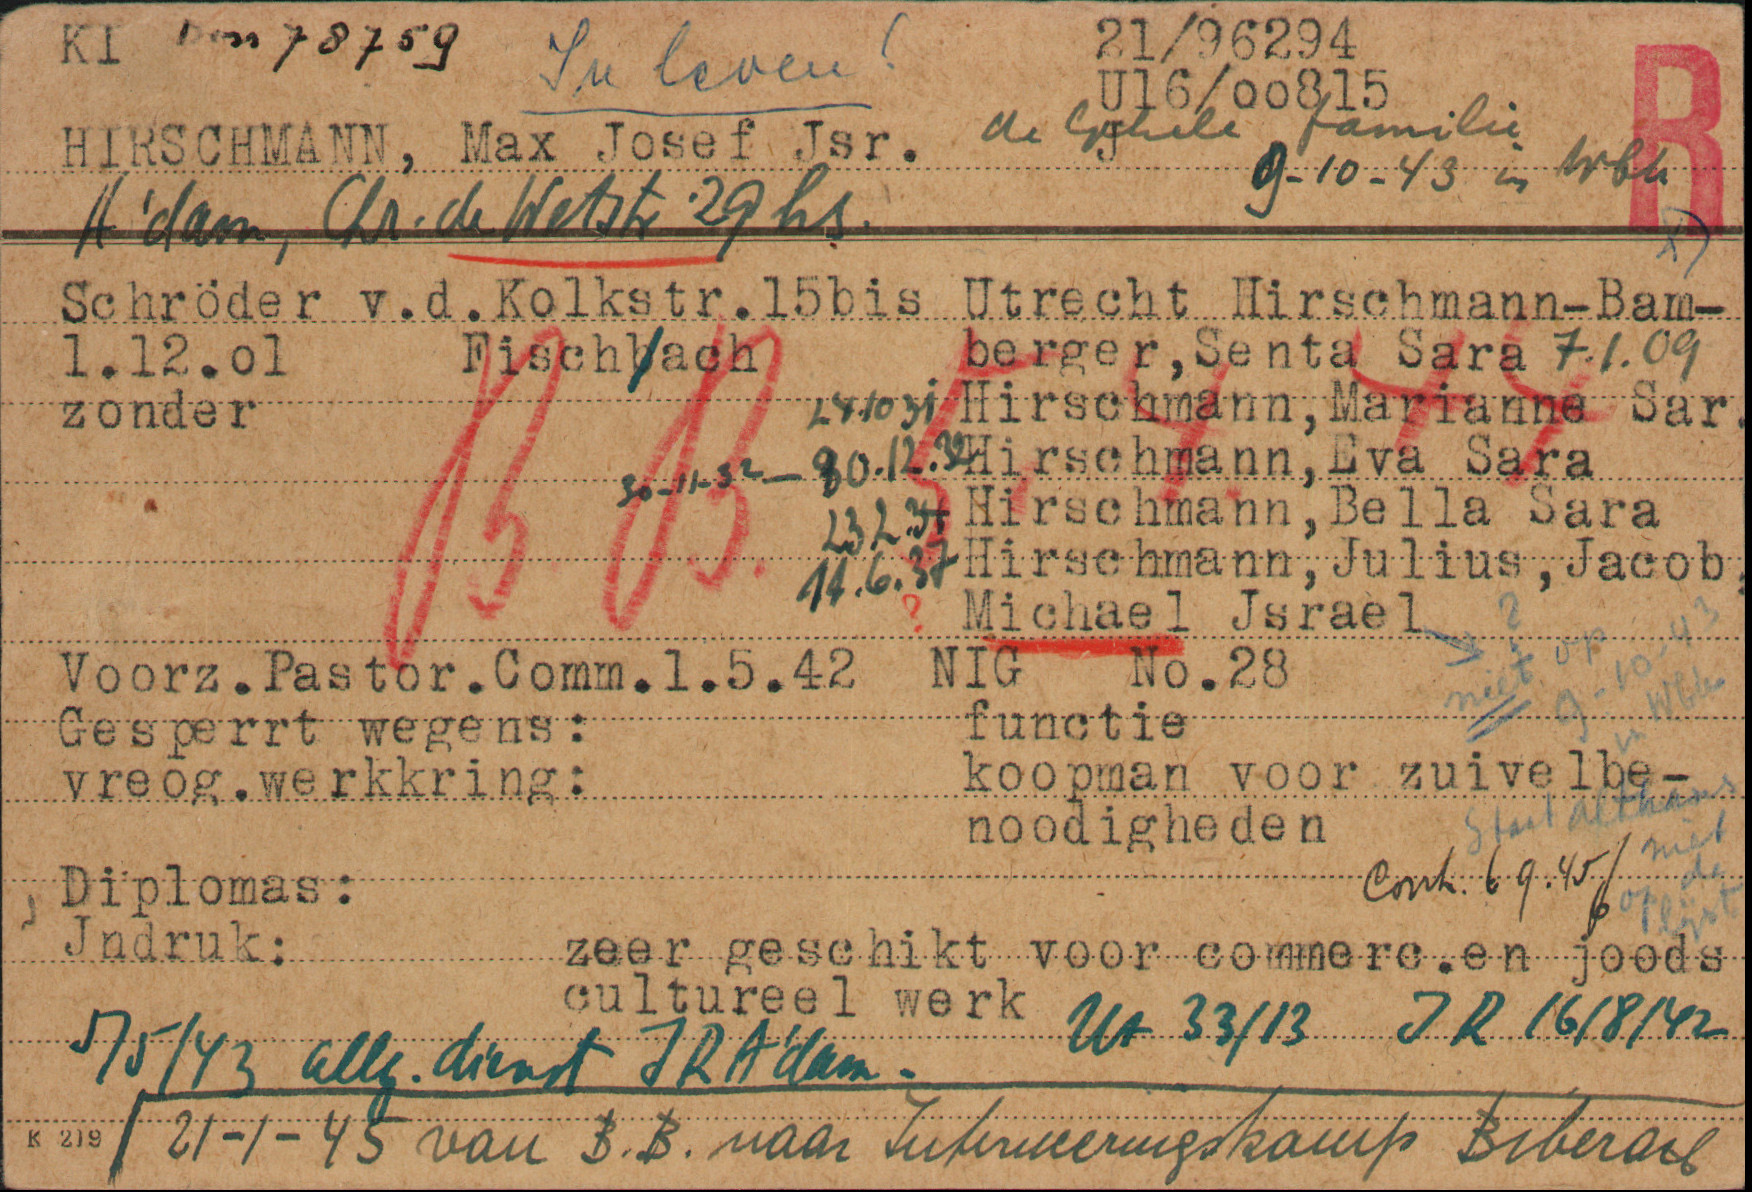 KI 78759 In leven! 21/96294
U16/oo815
HIRSCHMANN, Max Josef Jsr. J de gehele familie
9-10-43 in Wbk
R
A'dam, Chr. de Wetstr 29 hs.
Schröder v.d.Kolkstr.15bis Utrecht Hirschmann-Bam-
1.12.o1 Fischbach berger,Senta Sara 7.1.09
zonder Hirschmann,Marianne Sar.
30-11-32 — 30.12.32 Hirschmann,Eva Sara
Hirschmann,Bella Sara
11.6.37 Hirschmann,Julius,Jacob,
? Michael Jsrael
B B. 5.1.44
? niet op 9-10-43 in Wbk
Voorz.Pastor.Comm.1.5.42 NIG No.28
Gesperrt wegens: functie
vreog.werkkring: koopman voor zuivelbe-
noodigheden
Staat althans niet op de lijst
Diplomas: Contr. 6 9.45
Jndruk: zeer geschikt voor commerc.en joods
cultureel werk Ut 33/13 J R 16/8/42
5/5/43 allg. dienst J R A'dam.
K 219 21-1-45 van B.B. naar Interneeringskamp Biberach